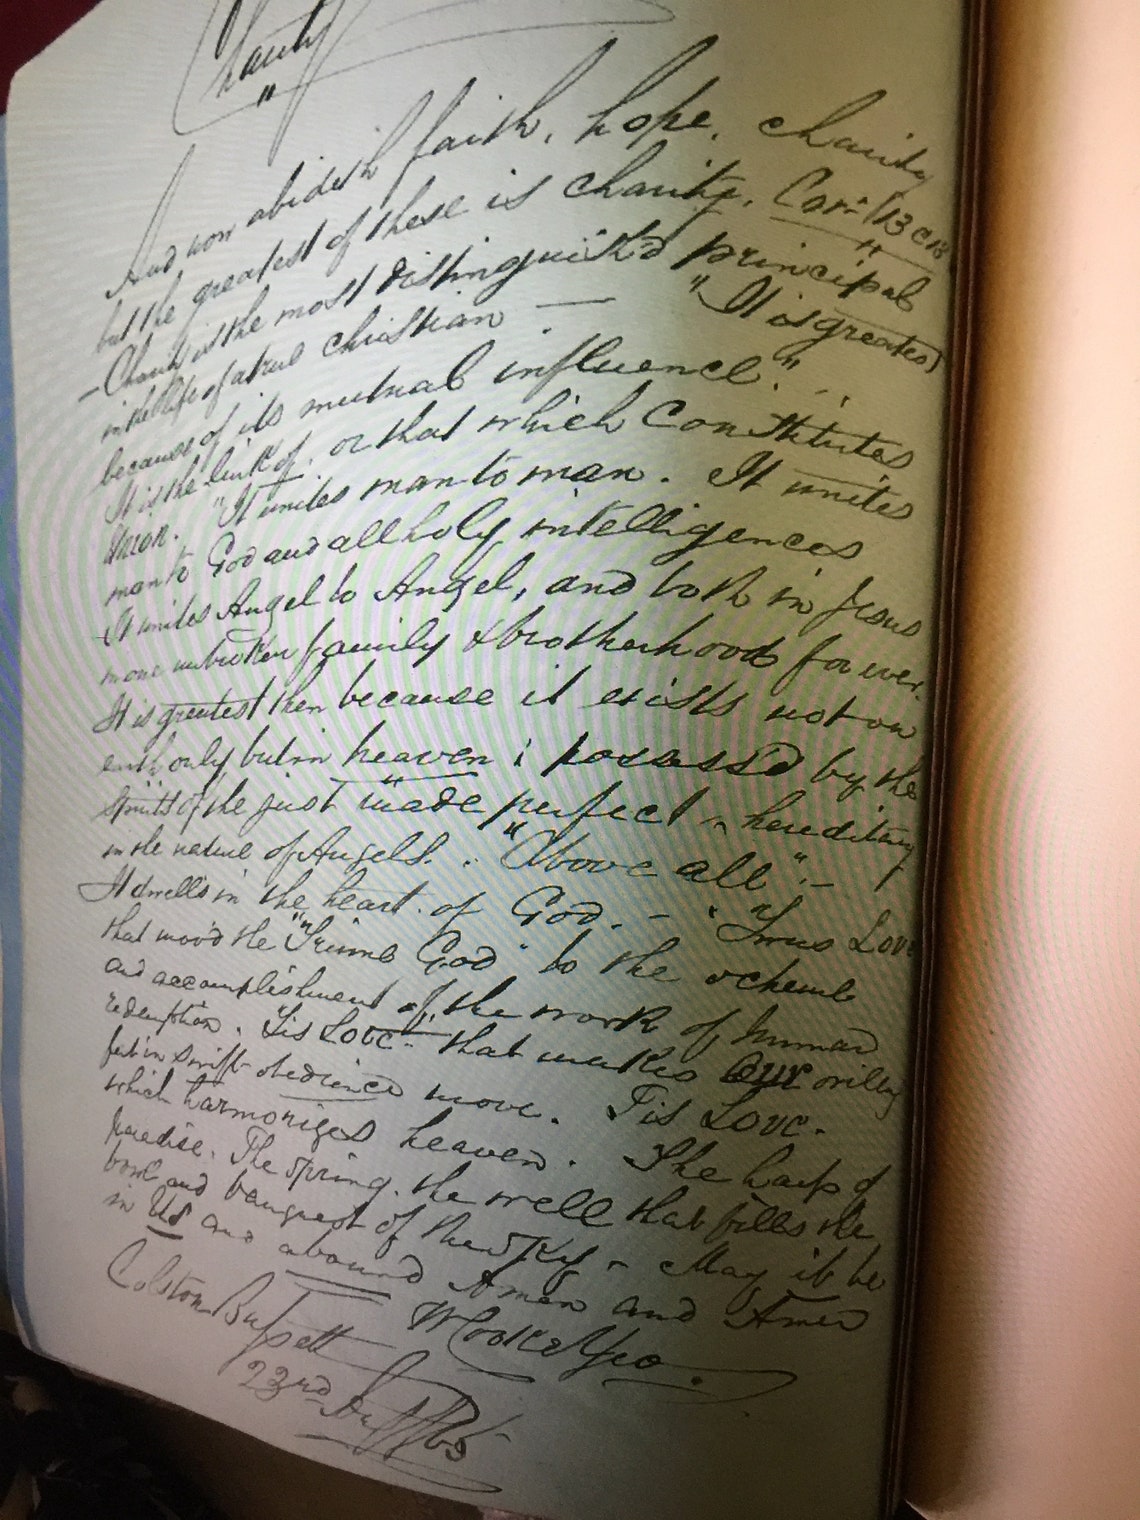 Charity
"
And now abideth faith, hope, charity
but the greatest of these is charity. Cor: 13 c 13
– Charity is the most distinguish'd principal "
in the life of a true christian — "It is greatest
because of its mutual influence".
It is the link of, or that which Constitutes
Union. "It unites man to man. It unites
man to God and all holy intelligences
It unites Angel to Angel, and both in Jesus
one unbroken family & brotherhood for ever.
It is greatest then because it exists not on
earth only but in heaven; possess'd by the
spirits of the just made perfect – hereditary
in the nature of Angels. .. "Above all" –
It dwells in the heart of God. – "Twas Love
that mov'd the "Triune God" to the scheme
and accomplishment of the work of human
redemption. 'Tis Love that makes our willing
feet in swift obedience move. Tis Love.
which harmonizes heaven. The harps of
paradise. The spring. the well that fills the
bowl and banquest of the sky – May it be
in Us and abound Amen and Amen
Colston Bassett
23rd